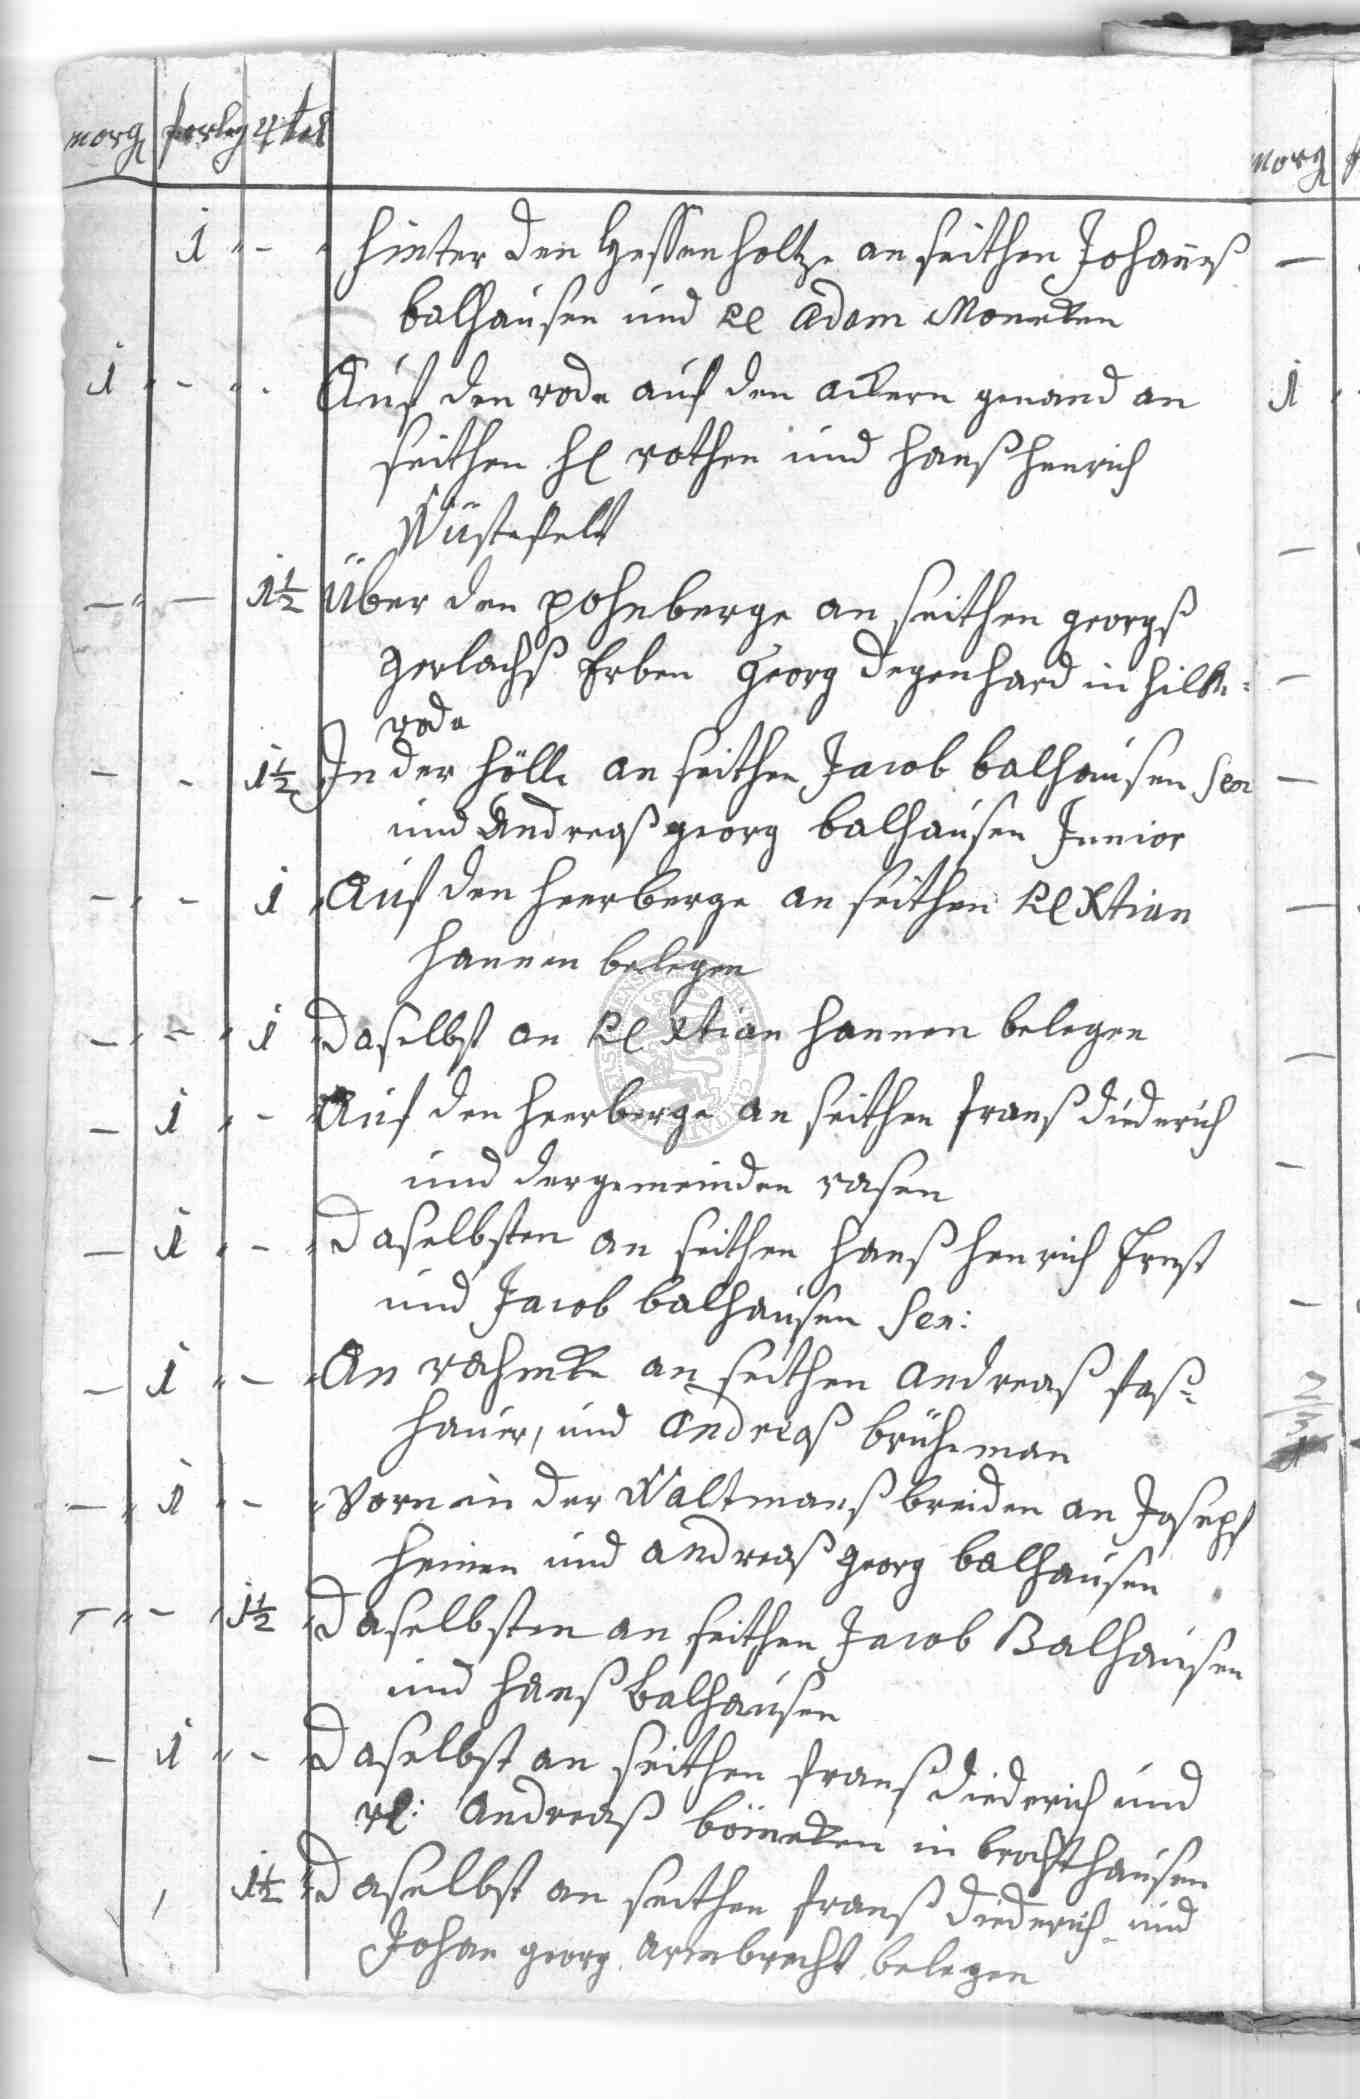 morg vorling 4tel
1 " - " hinter den Hessenholtze an seithen Johanes
balhausen und rel Adam Monecken
1 " - " - Auf den rode auf den ackern genand an
seithen hl rothen und hanß henrich
Wüstefelt
- " - 1½ Über den pohnberge an seithen georgß
gerlachß Erben georg degenhard in hilke-
rode
- - 1½ In der hölle an seithen Jacob balhausen Sen
und Andreaß georg balhausen Junior
- " - 1 Auf den heerberge an seithen rel Xtian
hannen belegen
- " - " 1 Daselbst an rel Xtian hannen belegen
- 1 " - Auf den heerberge an seithen franß diederich
und der gemeinden rasen
- 1 " - " Daselbsten an seithen hanß henrich Ernst
und Jacob balhausen Sen:
- 1 " - " An rahmke an seithen andreaß faß-
hauer, und andreaß brühman
- " 1 " - " Vorn in der Waltmanß breiden an Joseph
heinen und andreaß georg balhausen
- " - " 1½ " Daselbsten an seithen Jacob Balhausen
und hanß balhausen
- 1 " - Daselbst an seithen franß diederich und
rel: Andreaß bömeken in brochthausen
1½ " Daselbst an seithen franß diederich und
Johan georg armbrecht belegen
morg
-
1
-
-
-
-
-
-
-